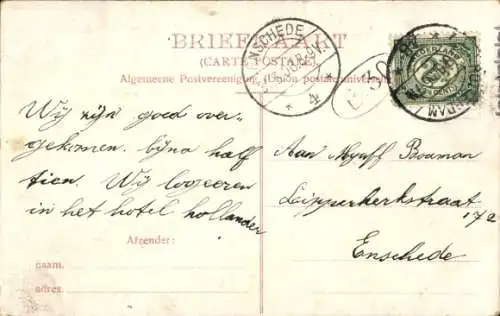 BRIEFKAART
(CARTE POSTALE)
Algemeene Postvereeniging (Union postale universelle)
ENSCHEDE
4
Wij zijn goed over-
gekomen. bijna half
tien. Wij logeeren
in het hotel hollander
Afzender:
naam.
adres.
Aan Mejuff Bosman
Lipperkerkstraat
172
Enschede